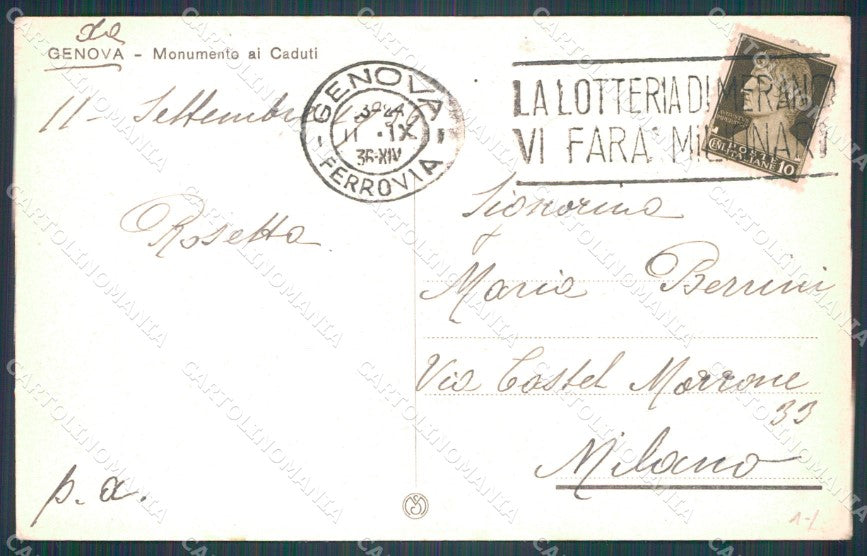 da
GENOVA - Monumento ai Caduti
11 - Settembre
Rosetta
p. a.
GENOVA
11 · IX
36·XIV
- FERROVIA -
LA LOTTERIA DI MERANO
VI FARA' MILIONARI
POSTE
CENT. ITALIANE 10
Signorina
Maria Bernini
Via Castel Morrone
33
Milano
CARTOLINOMANIA